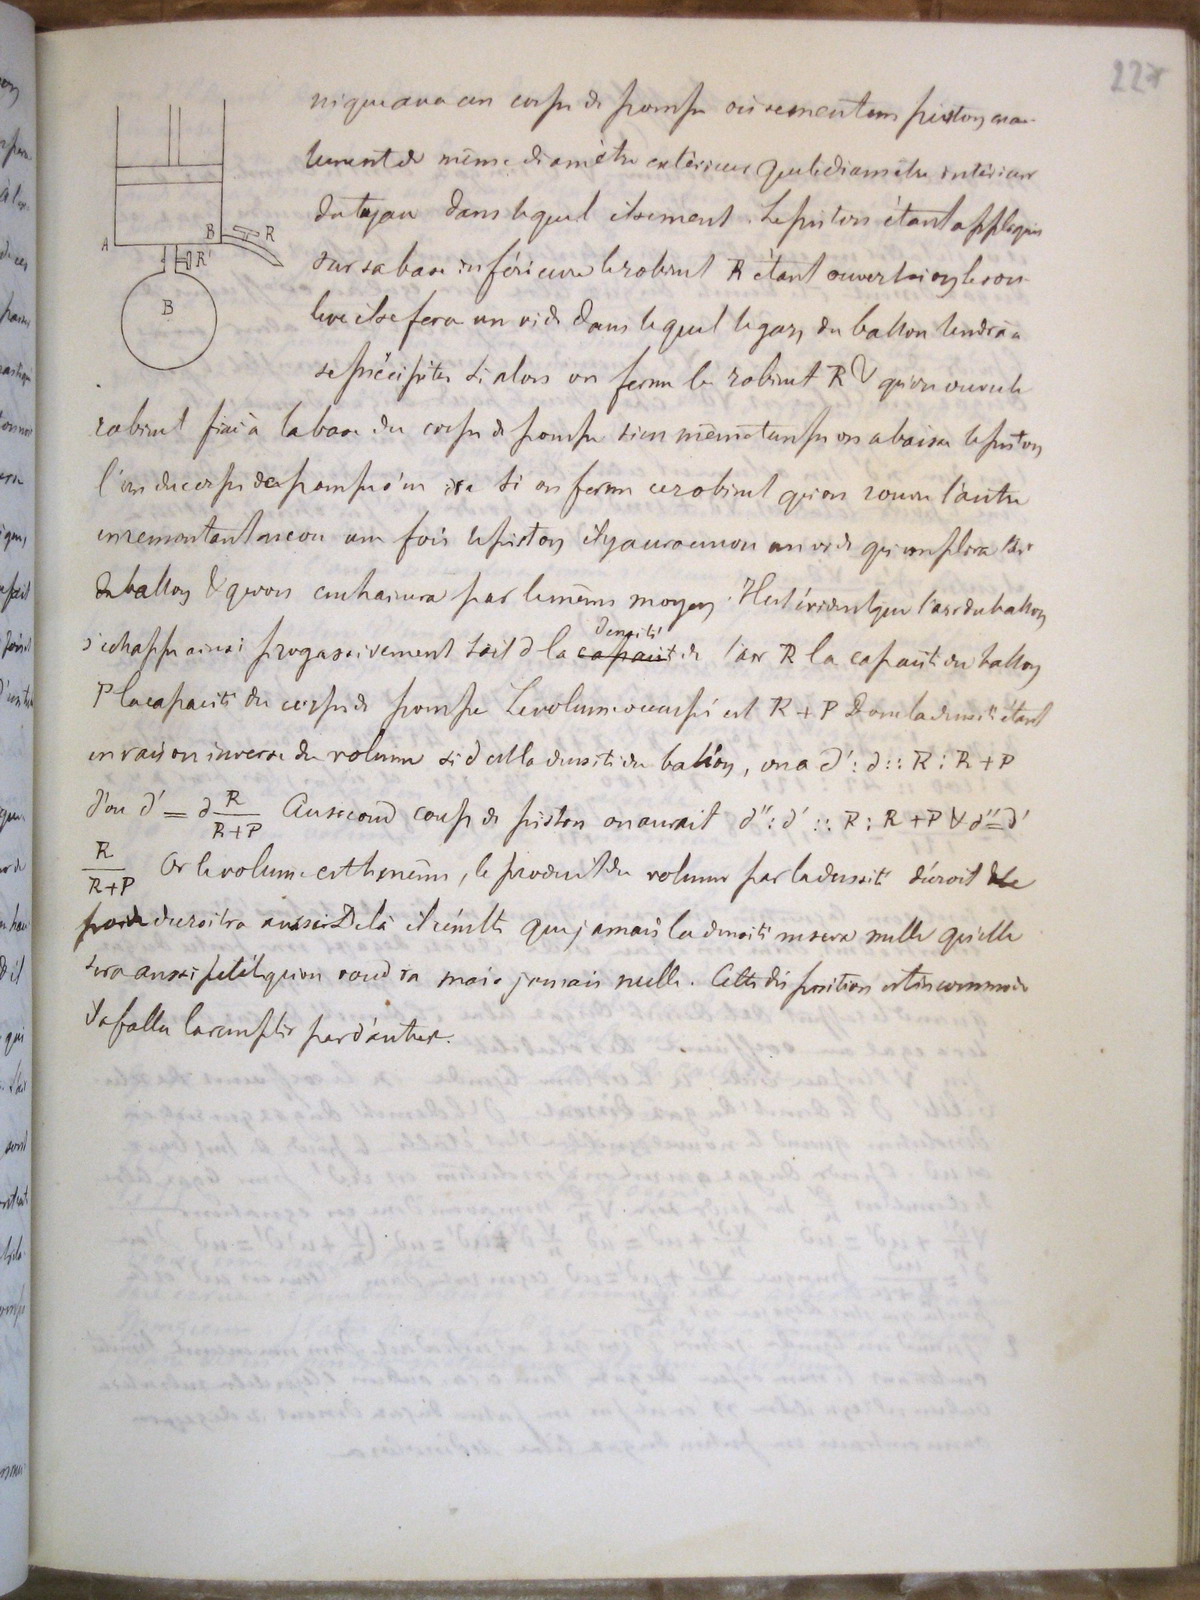 227
nique avec un corps de pompe où se ment un piston exac-
tement de même diamètre extérieur que le diamètre intérieur
du tuyau dans lequel il se ment. Le piston étant appliqué
sur sa base inférieure le robinet R étant ouvert si on le sou-
lève il se fera un vide dans lequel le gaz du ballon tendra à
se précipiter si alors on ferme le robinet R & qu'on ouvre le
robinet fixé à la base du corps de pompe si en même temps on abaisse le piston
l'air du corps de pompe s'en ira si on ferme ce robinet qu'on rouvre l'autre
en remontant encore une fois le piston il y aura encore un vide qu'emplira l'air
du ballon & qu'on enchainera par le même moyen. Il est évident que l'air du ballon
s'échappe ainsi progassivement soit d la capacité densité de l'air R la capacité du ballon
P la capacité du corps de pompe Le volume occupé est R + P Donc la densité étant
en raison inverse du volume si d est la densité du ballon, on a d' : d :: R : R + P
d'où d' = d R/R+P Au second coup de piston on aurait d'' : d' :: R : R + P & d'' = d'
R/R+P Or le volume est le même, le produit du volume par la densité décroit le
poids decroitra aussi De là il résulte que jamais la densité ne sera nulle qu'elle
sera aussi petite qu'on voudra mais jamais nulle. Cette disposition est incommode
il a fallu la remplir par d'autres.
A
B
R
R'
B